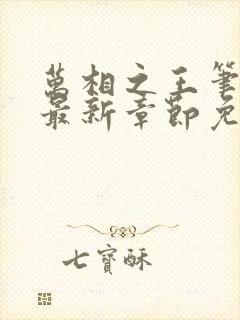 萬相之王筆
最新章節免
七寶酥